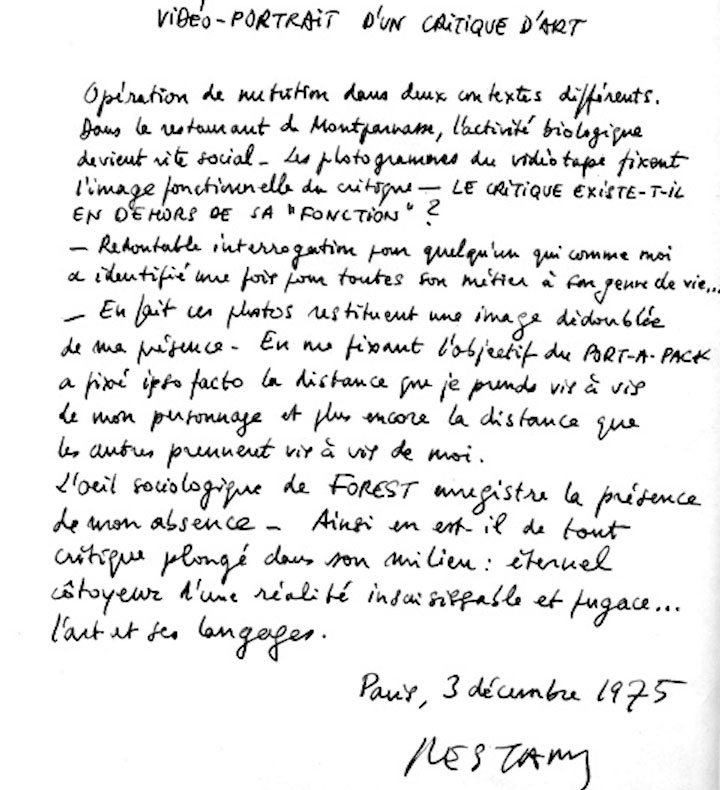 VIDÉO-PORTRAIT D'UN CRITIQUE D'ART
Opération de nutrition dans deux contextes différents.
Dans le restaurant de Montparnasse, l'activité biologique
devient rite social - Les photogrammes du vidéotape fixent
l'image fonctionnelle du critique - LE CRITIQUE EXISTE-T-IL
EN DEHORS DE SA "FONCTION" ?
- Redoutable interrogation pour quelqu'un qui comme moi
a identifié une fois pour toutes son métier à son genre de vie...
- En fait ces photos restituent une image dédoublée
de ma présence - En me fixant l'objectif du PORT-A-PACK
a fixé ipso facto la distance que je prends vis à vis
de mon personnage et plus encore la distance que
les autres prennent vis à vis de moi.
L'oeil sociologique de FOREST enregistre la présence
de mon absence - Ainsi en est-il de tout
critique plongé dans son milieu : éternel
côtoyeur d'une réalité insaisissable et fugace...
l'art et ses langages.
Paris, 3 décembre 1975
RESTANY